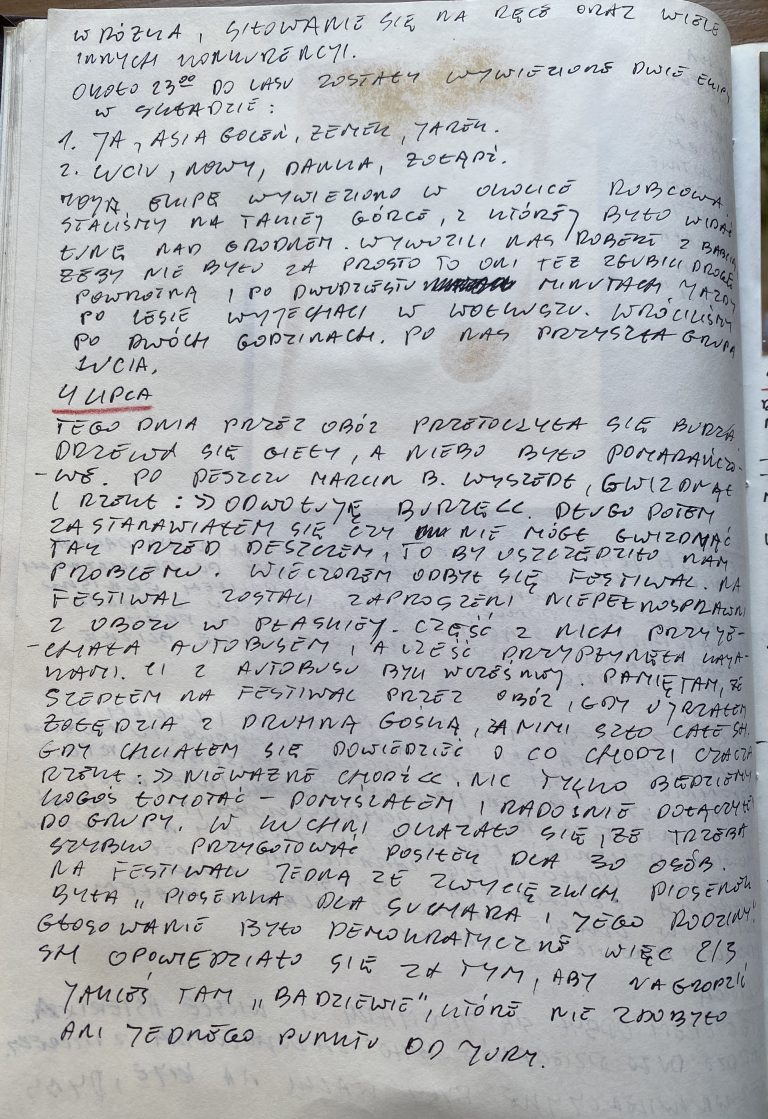 WRÓŻKA, SIŁOWANIE SIĘ NA RĘCE ORAZ WIELE
INNYCH KONKURENCJI.
OKOŁO 23⁰⁰ DO LASU ZOSTAŁY WYWIEZIONE DWIE EKIPY
W SKŁADZIE:
1. JA, ASIA GOLEŃ, ZEMEK, JAREK.
2. LUCIU, NOWY, DANKA, ŻOŁĄDŹ.
MOJĄ EKIPĘ WYWIEZIONO W OKOLICE RUBCOWA
STALIŚMY NA TAKIEJ GÓRCE, Z KTÓREJ BYŁO WIDAĆ
ŁUNĘ NAD GRODNEM. WYWOZILI NAS ROBERT Z BABCIĄ
ŻEBY NIE BYŁO ZA PROSTO TO ONI TEŻ ZGUBILI DROGĘ
POWROTNĄ I PO DWUDZIESTU MINUTACH JAZDY
PO LESIE WYJECHALI W WOŁKUSZU. WRÓCILIŚMY
PO DWÓCH GODZINACH. PO NAS PRZYSZŁA GRUPA
LUCIA.
4 LIPCA
TEGO DNIA PRZEZ OBÓZ PRZETOCZYŁA SIĘ BURZA
DRZEWA SIĘ GIEŁY, A NIEBO BYŁO POMARAŃCZO-
-WE. PO DESZCZU MARCIN B. WYSZEDŁ, GWIZDNĄŁ
I RZEKŁ: »ODWOŁUJĘ BURZĘ«. DŁUGO POTEM
ZASTANAWIAŁEM SIĘ CZY NIE MÓGŁ GWIZDNĄĆ
TAK PRZED DESZCZEM, TO BY USZCZĘDZIŁO NAM
PROBLEMU. WIECZOREM ODBYŁ SIĘ FESTIWAL. NA
FESTIWAL ZOSTALI ZAPROSZENI NIEPEŁNOSPRAWNI
Z OBOZU W PŁASKIEJ. CZĘŚĆ Z NICH PRZYJE-
-CHAŁA AUTOBUSEM, A CZĘŚĆ PRZYPŁYNĘŁA KAJA-
KAMI. CI Z AUTOBUSU BYLI WCZEŚNIEJ. PAMIĘTAM, ŻE
SZEDŁEM NA FESTIWAL PRZEZ OBÓZ, GDY UJRZAŁEM
ŻOŁĘDZIA Z DRUHNĄ GOSKĄ, ZA NIMI SZŁO CAŁE SH.
GDY CHCIAŁEM SIĘ DOWIEDZIEĆ O CO CHODZI CZACZA
RZEKŁ: »NIEWAŻNE CHODŹ«. NIC TYLKO BĘDZIEMY
KOGOŚ ŁOMOTAĆ – POMYŚLAŁEM I RADOŚNIE DOŁĄCZYŁEM
DO GRUPY. W KUCHNI OKAZAŁO SIĘ, ŻE TRZEBA
SZYBKO PRZYGOTOWAĆ POSIŁEK DLA 30 OSÓB.
NA FESTIWALU JEDNĄ ZE ZWYCIĘZKICH PIOSENEK
BYŁA „PIOSENKA DLA SUCHARA I JEGO RODZINY".
GŁOSOWANIE BYŁO DEMOKRATYCZNE WIĘC 2/3
SH OPOWIEDZIAŁO SIĘ ZA TYM, ABY NAGRODZIĆ
JAKIEŚ TAM „BADZIEWIE", KTÓRE NIE ZDOBYŁO
ANI JEDNEGO PUNKTU OD JURY.